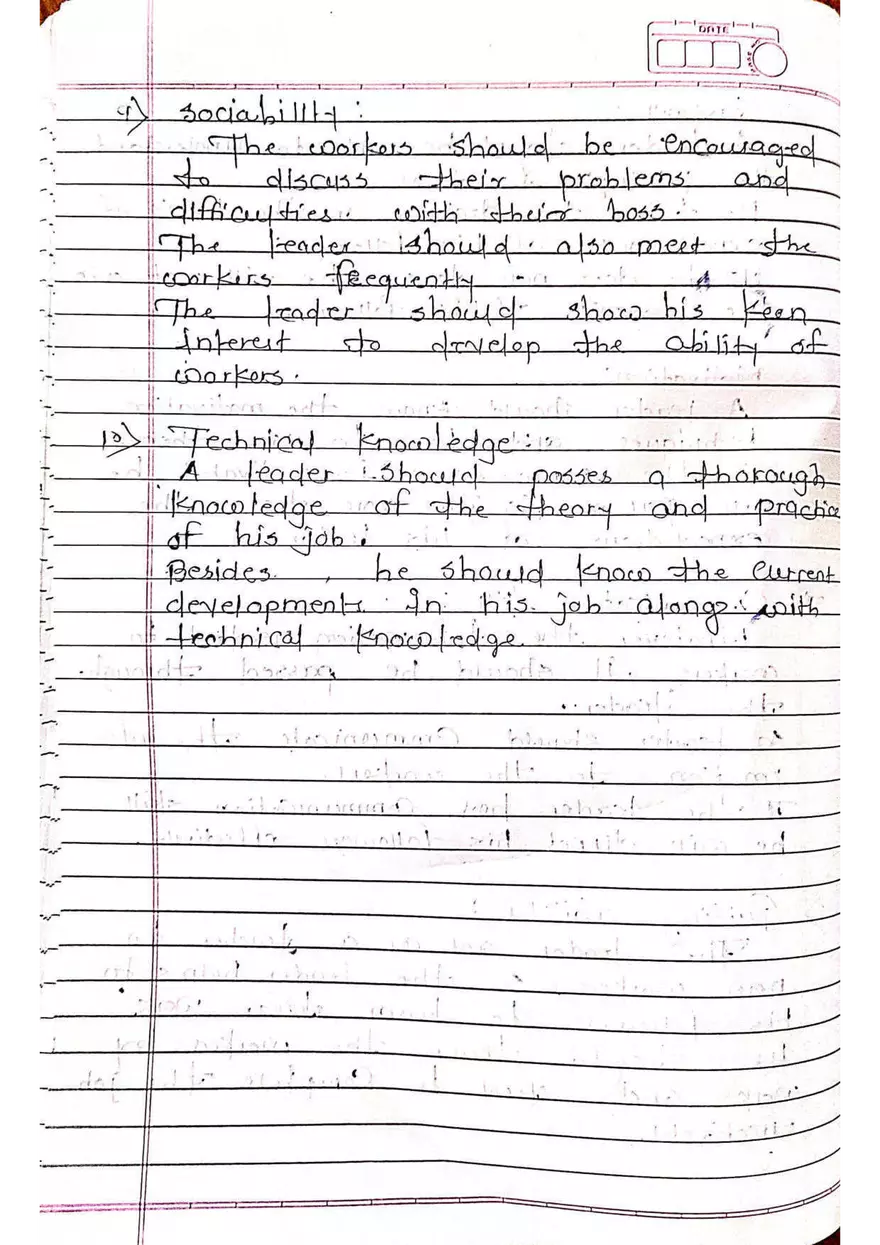 DATE
9) sociabillty :
The workers should be encouraged
to discuss their problems and
difficulties. with their boss.
The leader should also meet the
workers frequently
The leader should show his keen
interest to develop the ability of
workers.
10) Technical knowledge :
A leader should posses a thorough
knowledge of the theory and practice
of his job.
Besides , he should know the current
developments in his job along with
technical knowledge.